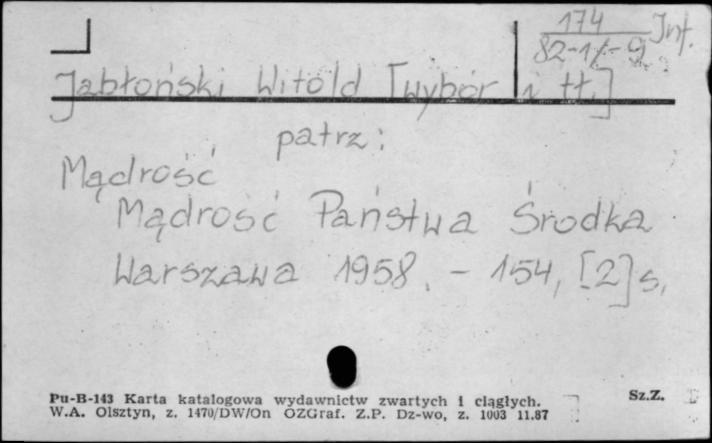 174 Inf.
82-1/-9
Jabłoński Witold [wybór i tł.]
patrz:
Mądrość
Mądrość Państwa Środka
Warszawa 1958. - 154, [2] s.
Pu-B-143 Karta katalogowa wydawnictw zwartych i ciągłych. Sz.Z.
W.A. Olsztyn, z. 1470/DW/On OZGraf. Z.P. Dz-wo, z. 1003 11.87